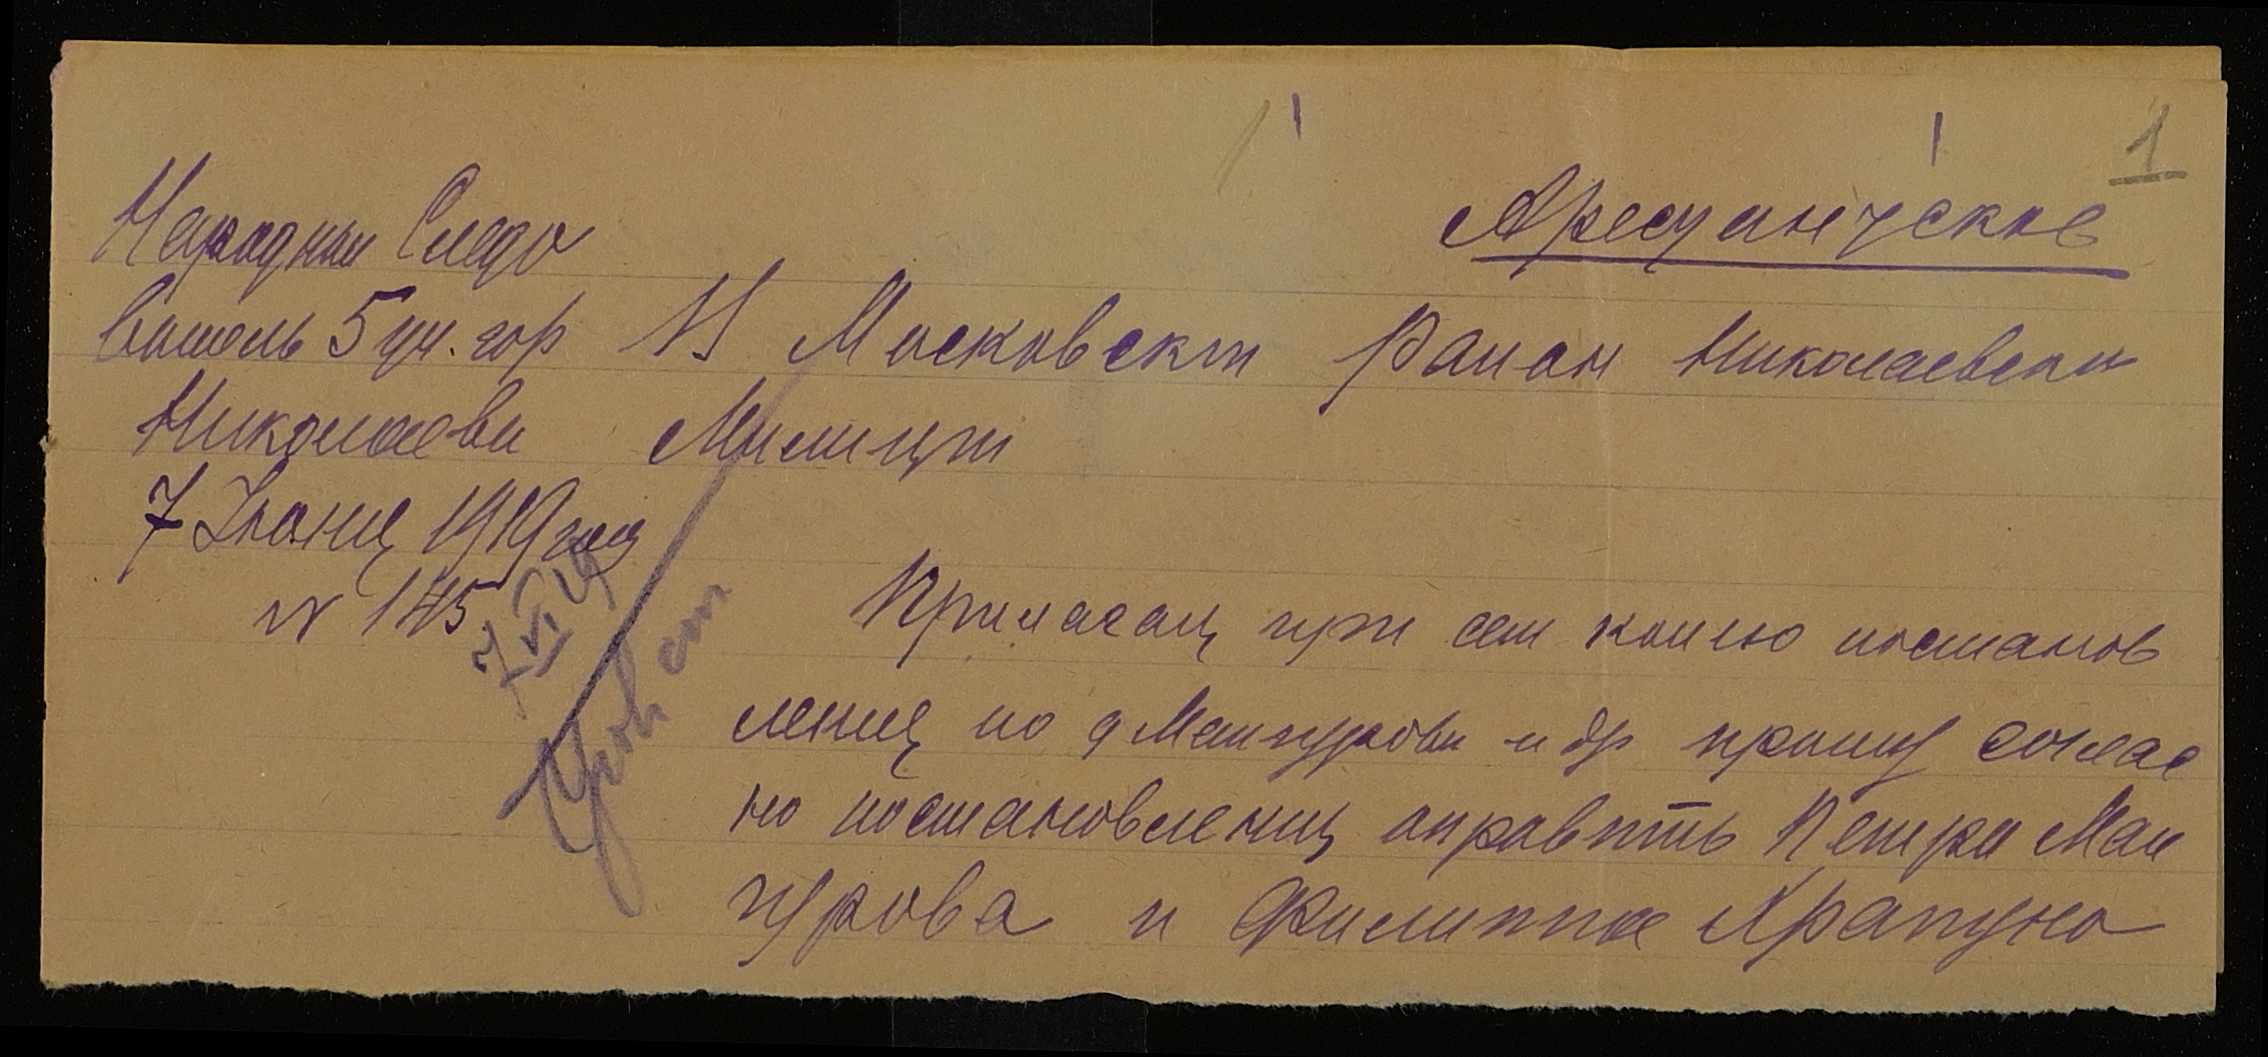 1
Арестантское
Народный Следо
ватель 5 уч. гор
Николаева
7 Июня 1919 года
N 145
В Московский Район Николаевской
Милиции
7 VI 19
Прилагая при сем копию постанов
ления по д Манжурова и др прошу соглас
но постановления отправить Петра Ман
журова и Филиппа Храпуна